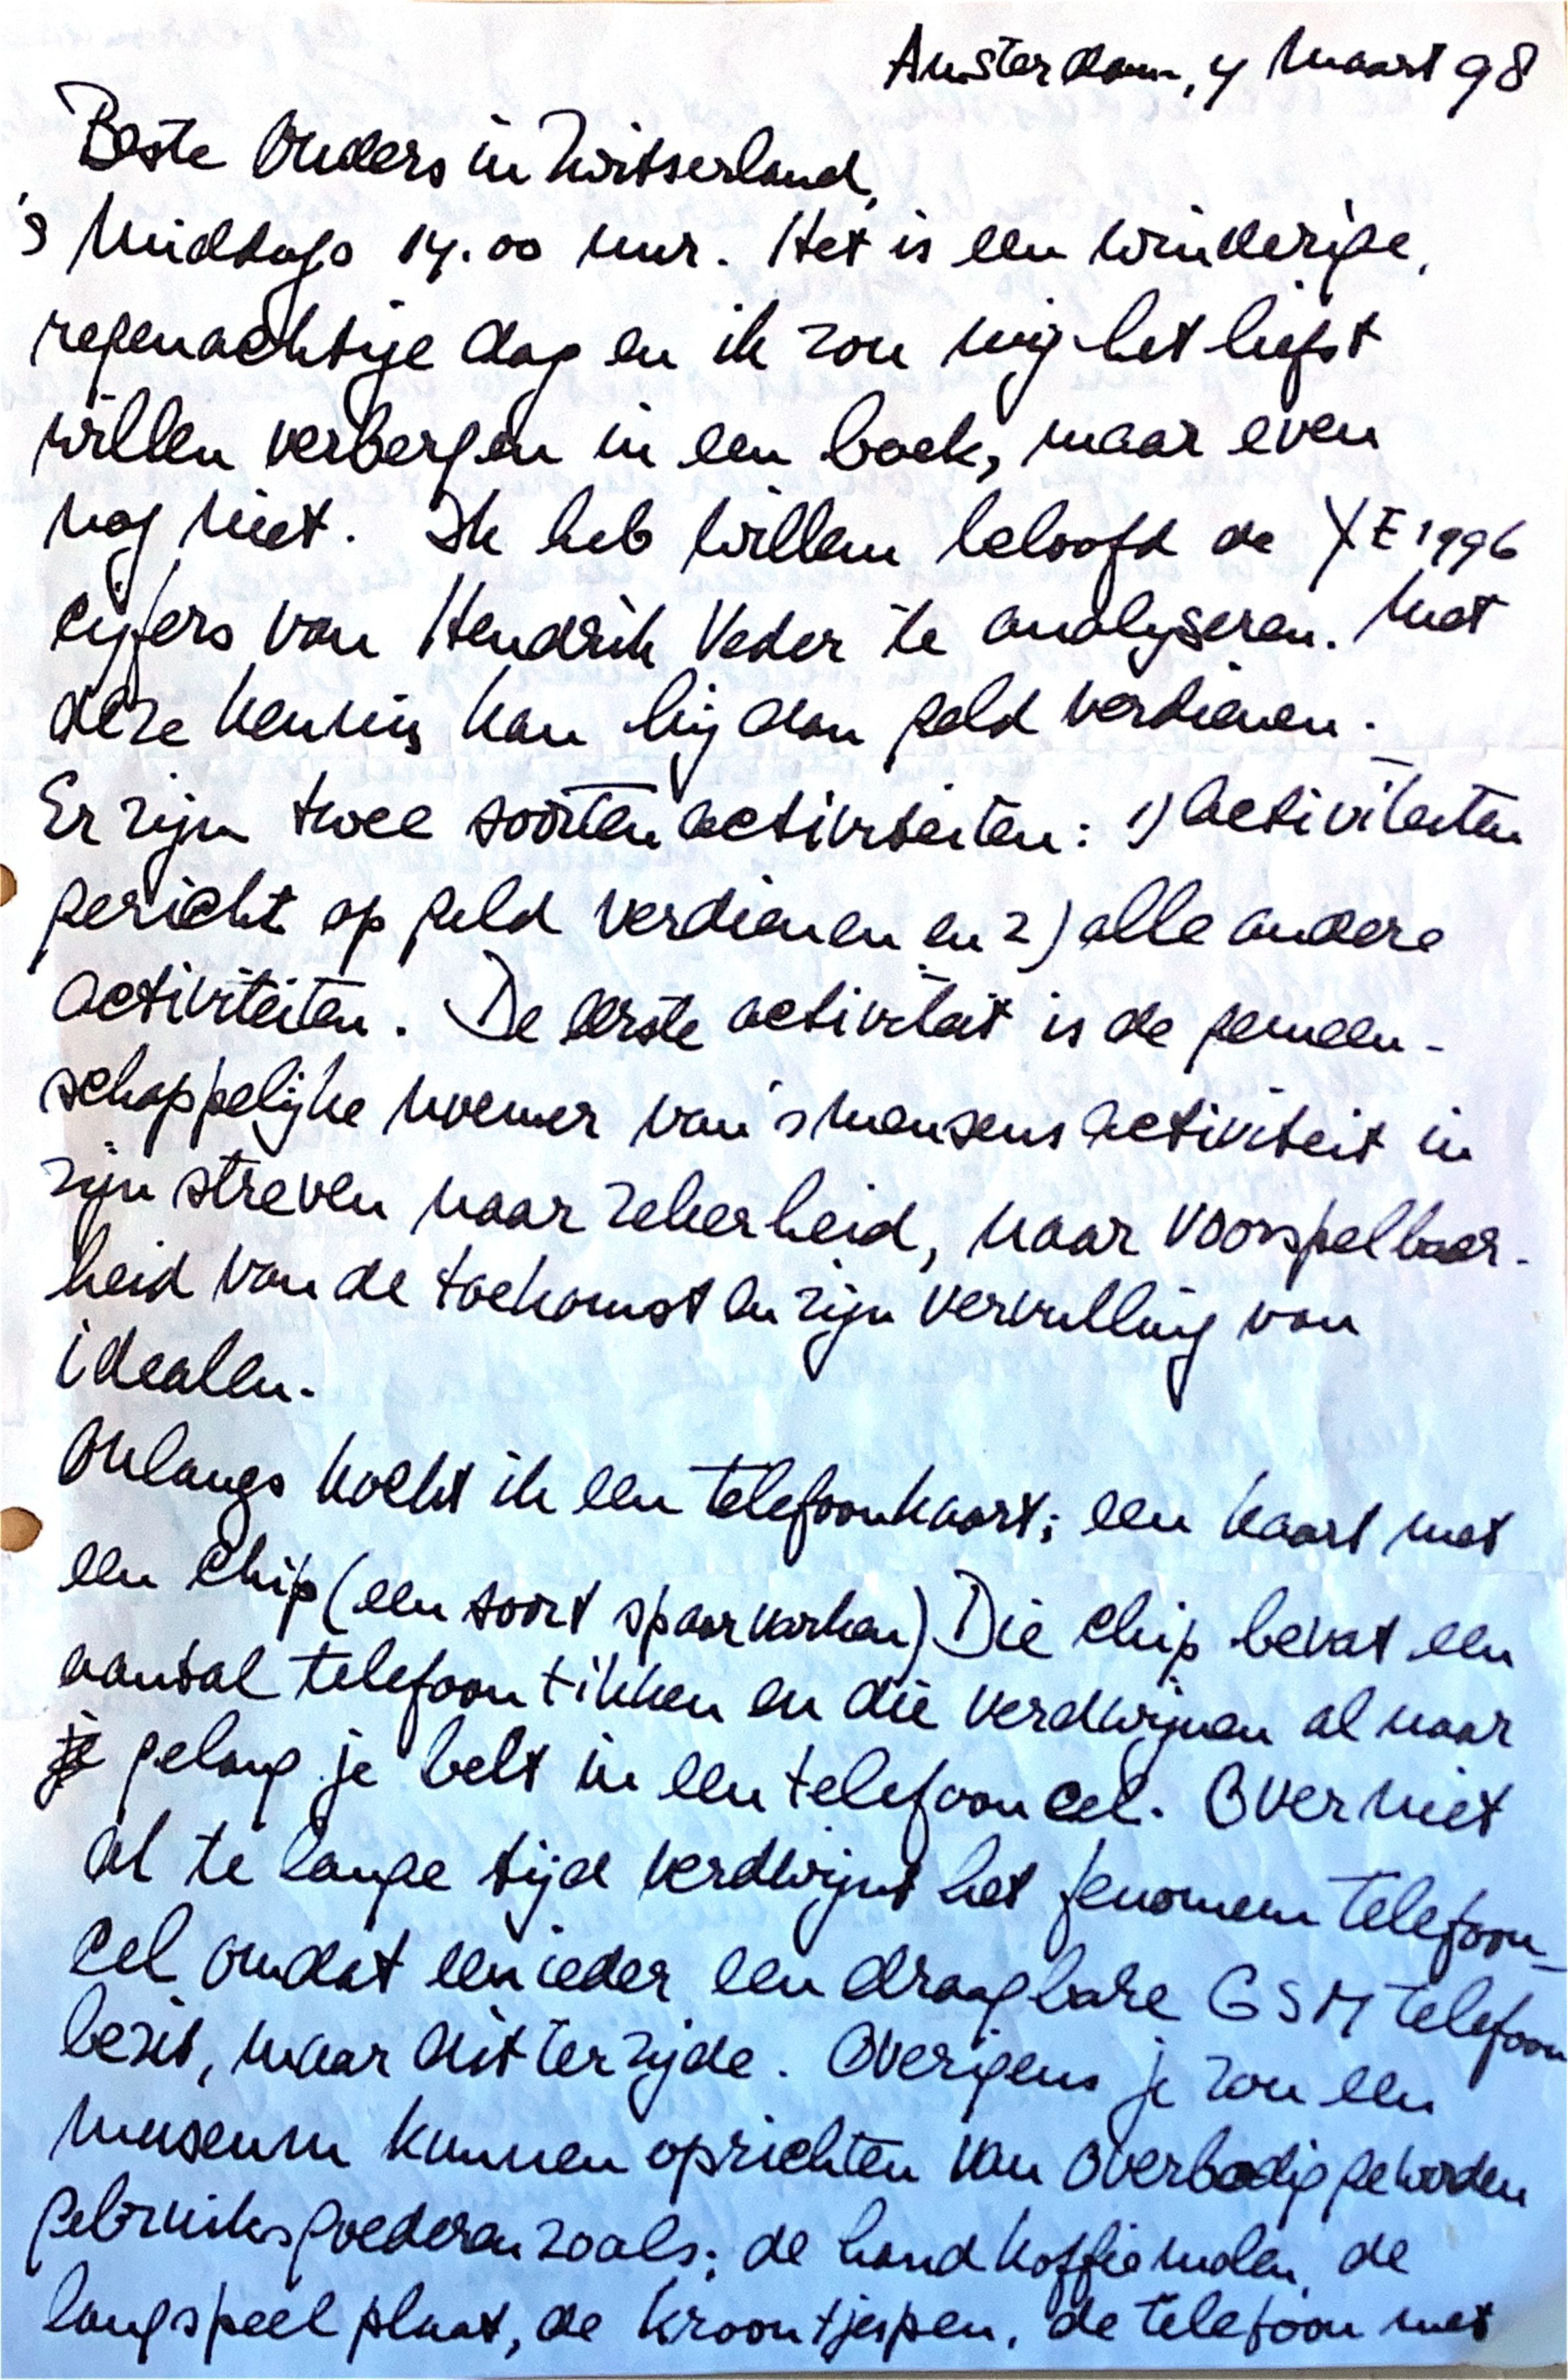 Amsterdam, 4 Maart 98
Beste Ouders in Zwitserland,
's Middags 14.00 uur. Het is een winderige,
regenachtige dag en ik zou mij het liefst
willen verbergen in een boek, maar even
nog niet. Ik heb Willem beloofd de YE 1996
cijfers van Hendrik Veder te analyseren. Met
deze kennis kan hij dan geld verdienen.
Er zijn twee soorten activiteiten: 1) activiteiten
gericht op geld verdienen en 2) alle andere
activiteiten. De eerste activiteit is de gemeen-
schappelijke noemer van 's mensens activiteit in
zijn streven naar zekerheid, naar voorspelbaar-
heid van de toekomst en zijn vervulling van
idealen.
Onlangs kocht ik een telefoonkaart; een kaart met
een chip (een soort spaarvarken) Die chip bevat een
aantal telefoontikken en die verdwijnen al naar
gelang je belt in een telefooncel. Over niet
al te lange tijd verdwijnt het fenomeen telefoon-
cel omdat een ieder een draagbare GSM telefoon
bezit, maar dit terzijde. Overigens je zou een
museum kunnen oprichten van overbodig geworden
gebruiksgoederen zoals: de hand koffiemolen, de
langspeelplaat, de kroontjespen, de telefoon met